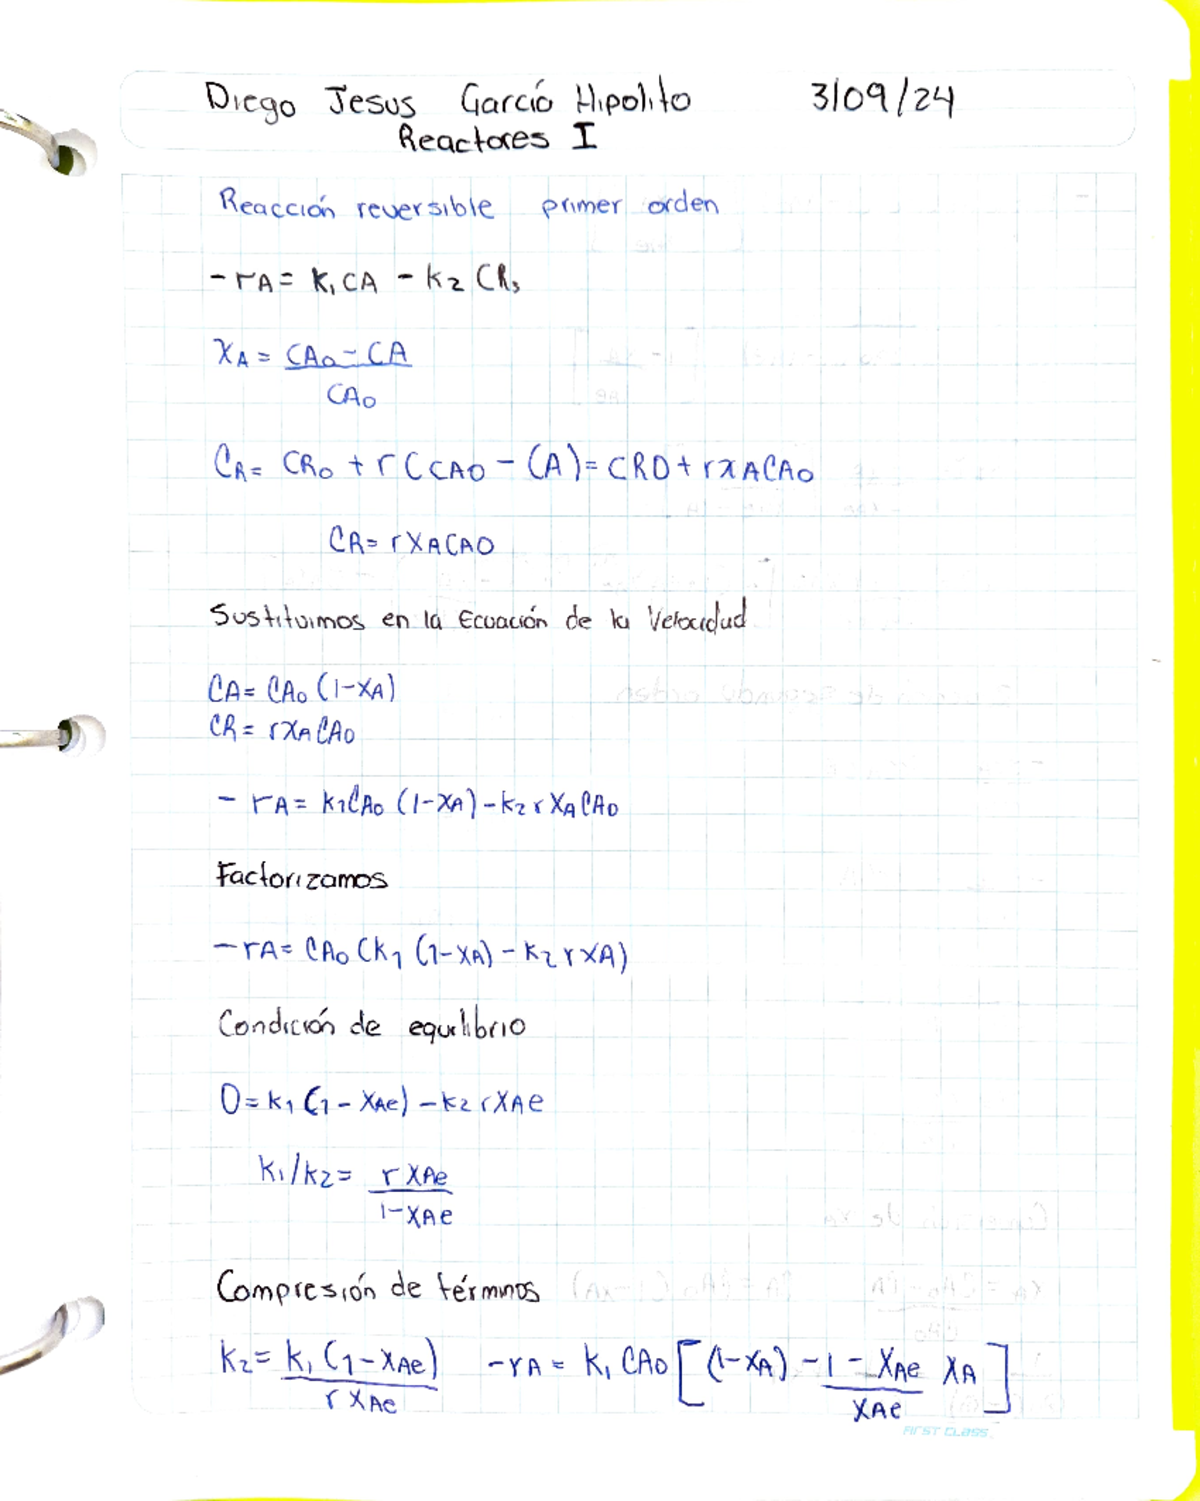 Diego Jesus Garcíó Hipolito 3/09/24
Reactores I
Reacción reversible primer orden
-rA= K₁CA - k2 CR,
XA= CA0-CA
CA0
CR= CR0 + r(CA0 - CA)= CR0+ rxACA0
CR= rXACA0
Sustituimos en la Ecuación de la Velocidad
CA= CA0 (1-XA)
CR= rXACA0
- rA= k1CA0 (1-XA)-k2 r XA CA0
Factorizamos
-rA= CA0 (k1 (1-XA)-k2 r XA)
Condición de equilibrio
0=k1 (1-XAe)-k2 rXAe
k1/k2= r XAe
1-XAe
Compresión de términos
k2= k1 (1-XAe) -rA = k1 CA0 [(1-XA) - 1 - XAe XA]
r XAe XAe
First Class